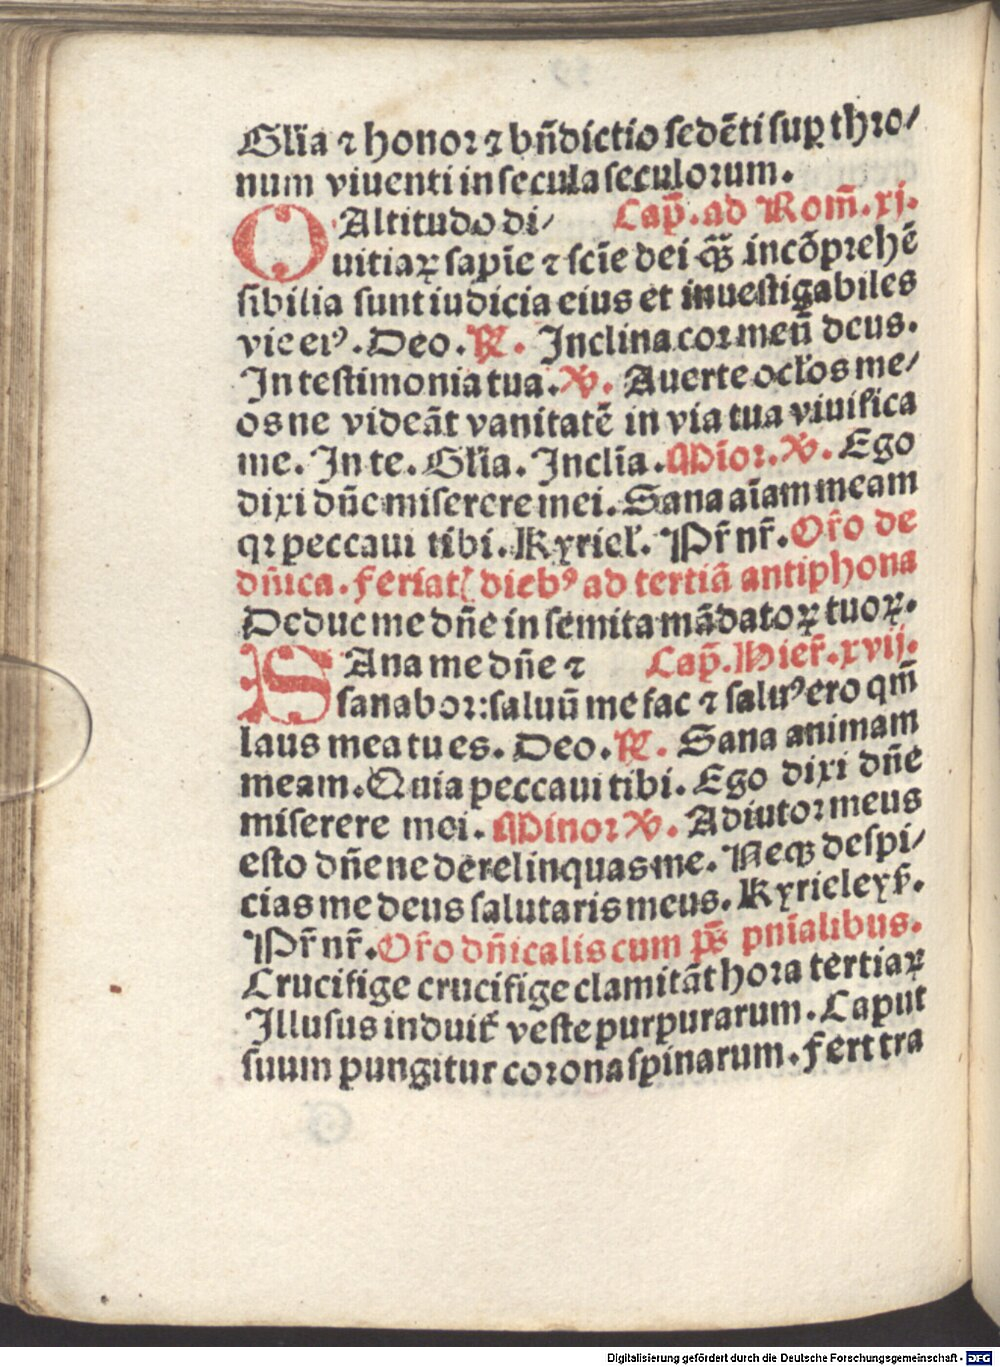 Gl̄ia ⁊ honor ⁊ bn̄dictio sedēti suꝑ thro/
num viuenti in secula seculorum.
O Altitudo di/ Cap̄. ad Rom̄. xj.
uitiaꝝ sapīe ⁊ scīe dei qꝫ̄ incōprehē
sibilia sunt iudicia eius et inuestigabiles
vie eiꝰ. Deo. ℟. Inclina cor meū deus.
In testimonia tua. ℣. Auerte ocl̓os me/
os ne videāt vanitatē in via tua viuifica
me. In te. Gl̄ia. Inclīa. Mīor. ℣. Ego
dixi dn̄e miserere mei. Sana aīam meam
qꝛ peccaui tibi. Kyriel̓. Pr̄ nr̄. Or̄o de
dn̄ica. feriatꝭ diebꝰ ad tertiā antiphona
Deduc me dn̄e in semita mādatoꝝ tuoꝝ.
SAna me dn̄e ⁊ Cap̄. Hier̄. xvij.
sanabor: saluū me fac ⁊ saluꝰ ero qm̄
laus mea tu es. Deo. ℟. Sana animam
meam. Quia peccaui tibi. Ego dixi dn̄e
miserere mei. Minor ℣. Adiutor meus
esto dn̄e ne derelinquas me. Neqꝫ despi/
cias me deus salutaris meus. Kyrieleyſ̄.
Pr̄ nr̄. Or̄o dn̄icalis cum p̄s pnīalibus.
Crucifige crucifige clamitāt hora tertiaꝝ
Illusus induit̄ veste purpurarum. Caput
suum pungitur corona spinarum. fert tra
Digitalisierung gefördert durch die Deutsche Forschungsgemeinschaft - DFG